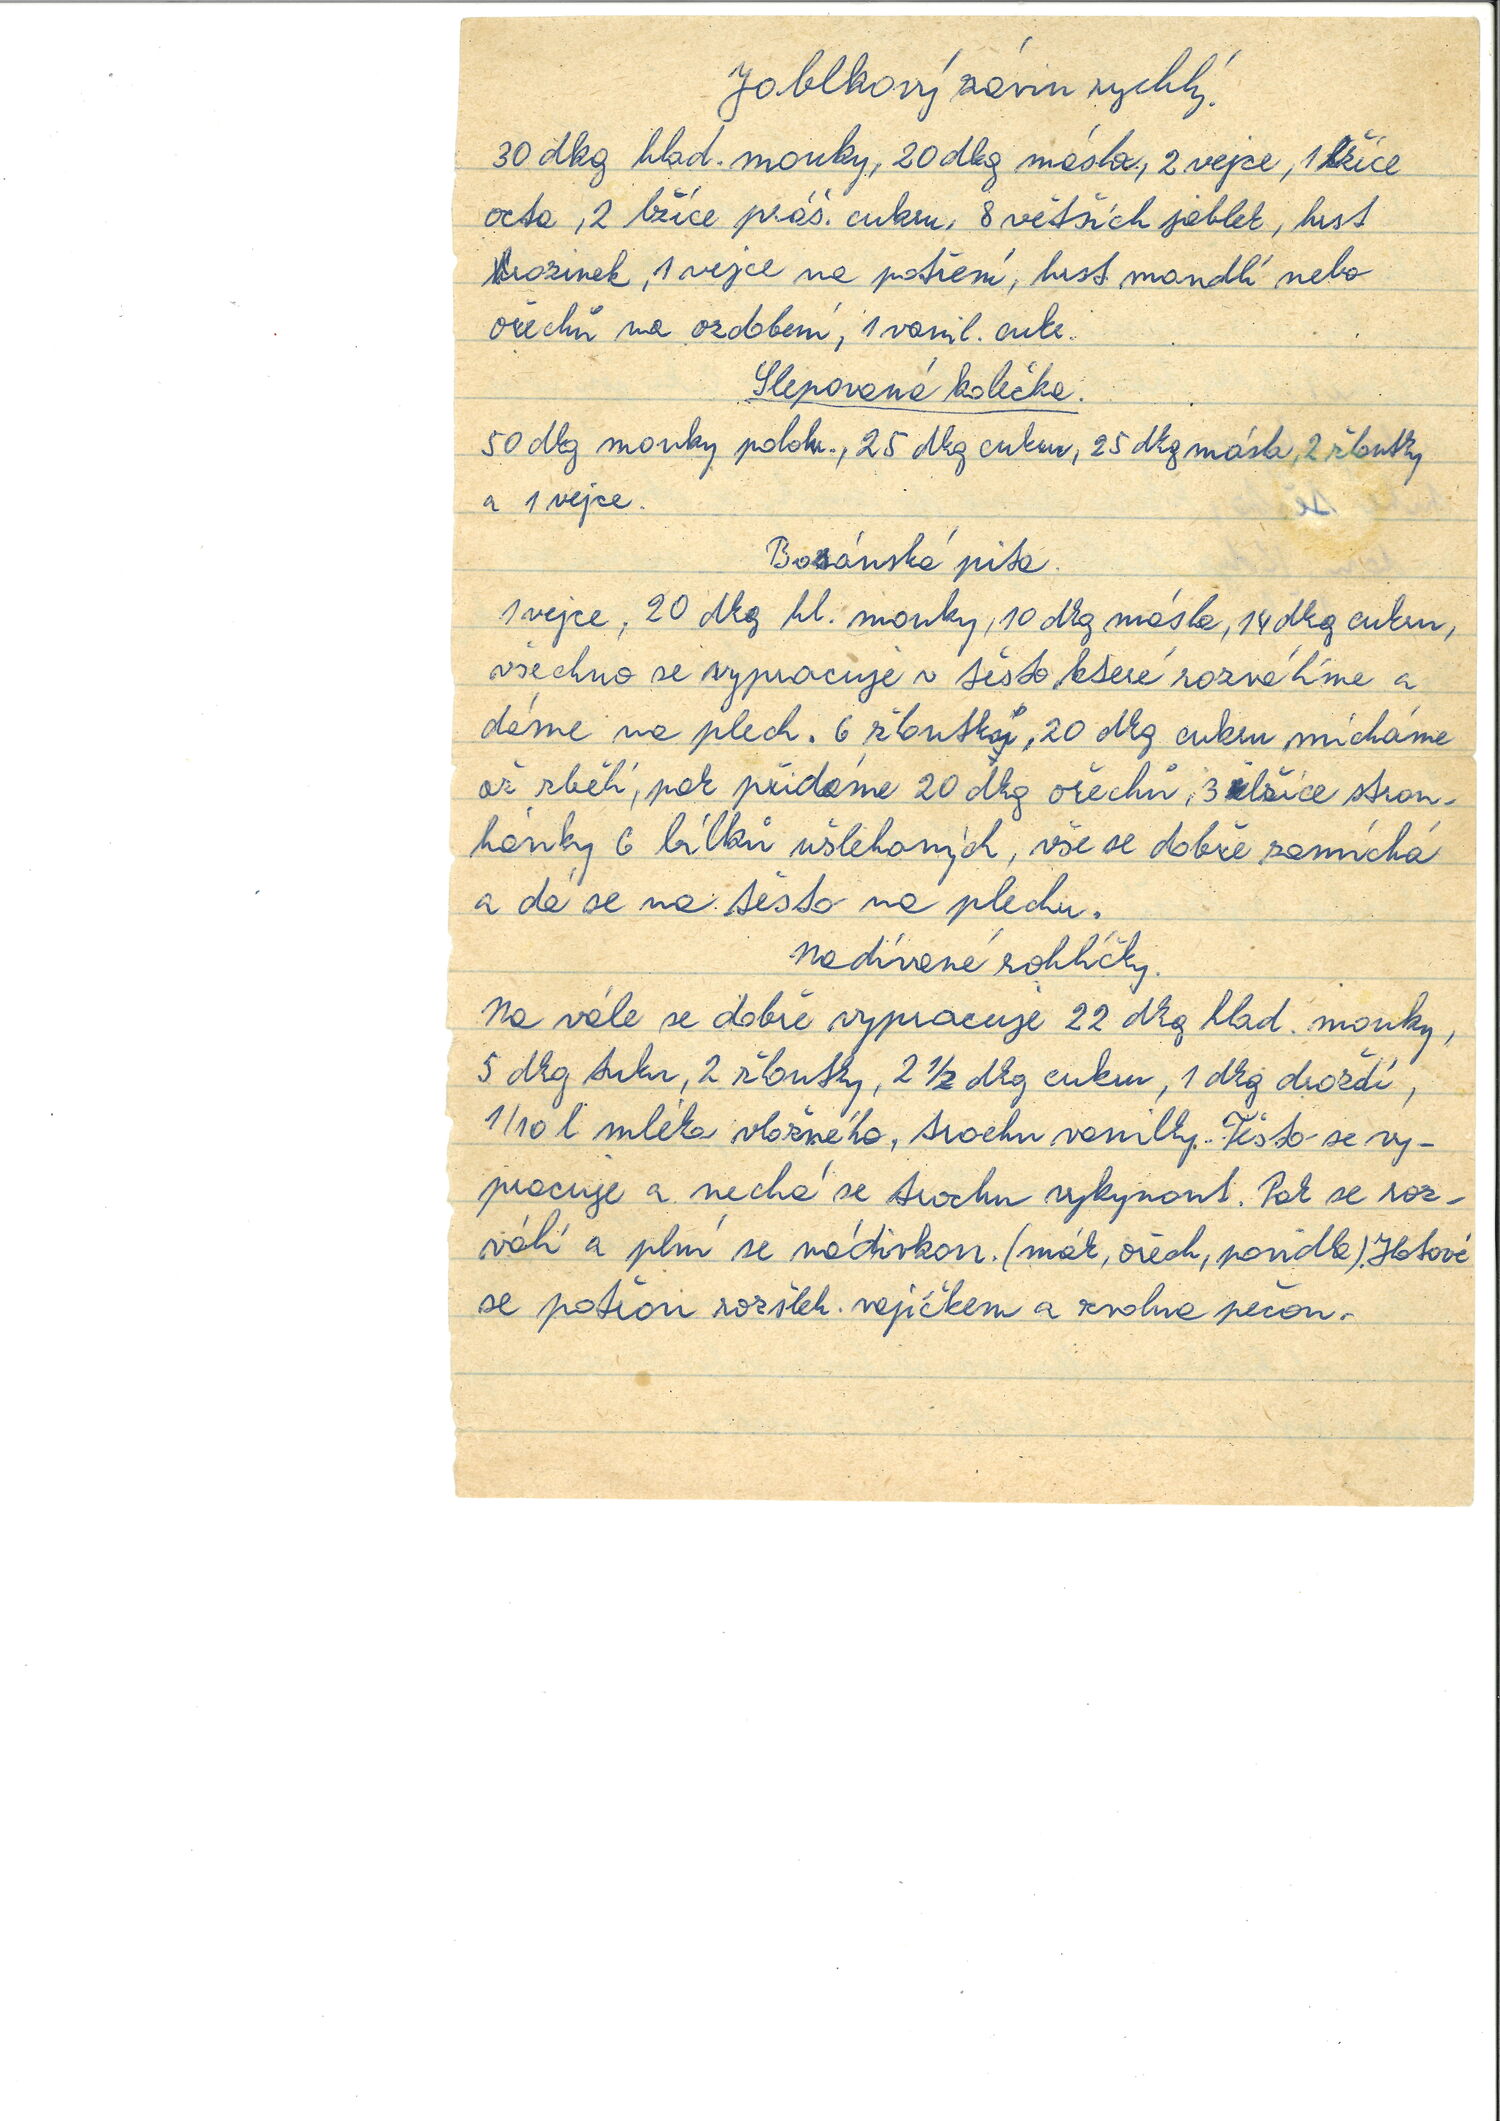 Jablkový závin rychlý.
30 dkg hlad. mouky, 20 dkg másla, 2 vejce, 1 lžíce
octa, 2 lžíce práš. cukru, 8 větších jablek, hrst
hrozinek, 1 vejce na potření, hrst mandlí nebo
ořechů na ozdobení, 1 vanil. cukr.
Slepovaná kolečka.
50 dkg mouky polohr., 25 dkg cukru, 25 dkg másla, 2 žloutky
a 1 vejce.
Bosánská pita.
1 vejce, 20 dkg hl. mouky, 10 dkg másla, 14 dkg cukru,
všechno se vypracuje v těsto které rozválíme a
dáme na plech. 6 žloutků, 20 dkg cukru mícháme
až zbělí, pak přidáme 20 dkg ořechů, 3 lžíce strou-
hánky 6 bílků ušlehaných, vše se dobře zamíchá
a dá se na těsto na plechu.
Nadívané rohlíčky.
Na vále se dobře vypracuje 22 dkg hlad. mouky,
5 dkg tuku, 2 žloutky, 2 1/2 dkg cukru, 1 dkg droždí,
1/10 l mléka vlažného, trochu vanilky. Těsto se vy-
pracuje a nechá se trochu vykynout. Pak se roz-
válí a plní se nádivkou. (mák, ořech, povidla). Hotové
se potřou rozšleh. vajíčkem a zvolna pečou.